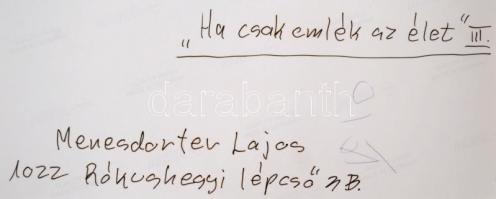 „Ha csak emlék az élet" III.
darabanth
Menesdorfer Lajos
1022 Rókushegyi lépcső